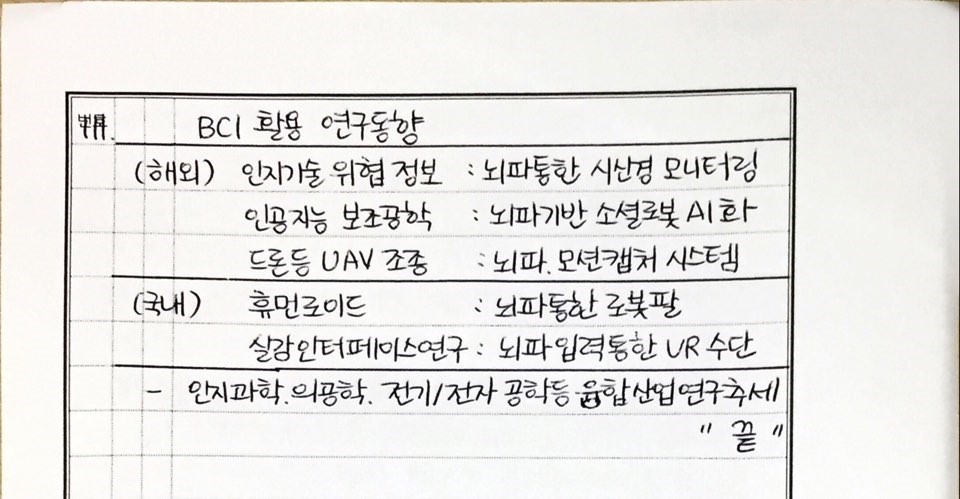 BCI 활용 연구동향
(해외) 인지기술 위협 정보 : 뇌파통한 시산경 모니터링
인공지능 보조공학 : 뇌파기반 소셜로봇 AI화
드론등 UAV 조종 : 뇌파.모션캡처 시스템
(국내) 휴먼로이드 : 뇌파통한 로봇팔
실감인터페이스연구 : 뇌파입력통한 VR 수단
- 인지과학.의공학. 전기/전자 공학등 융합산업연구추세
"끝"